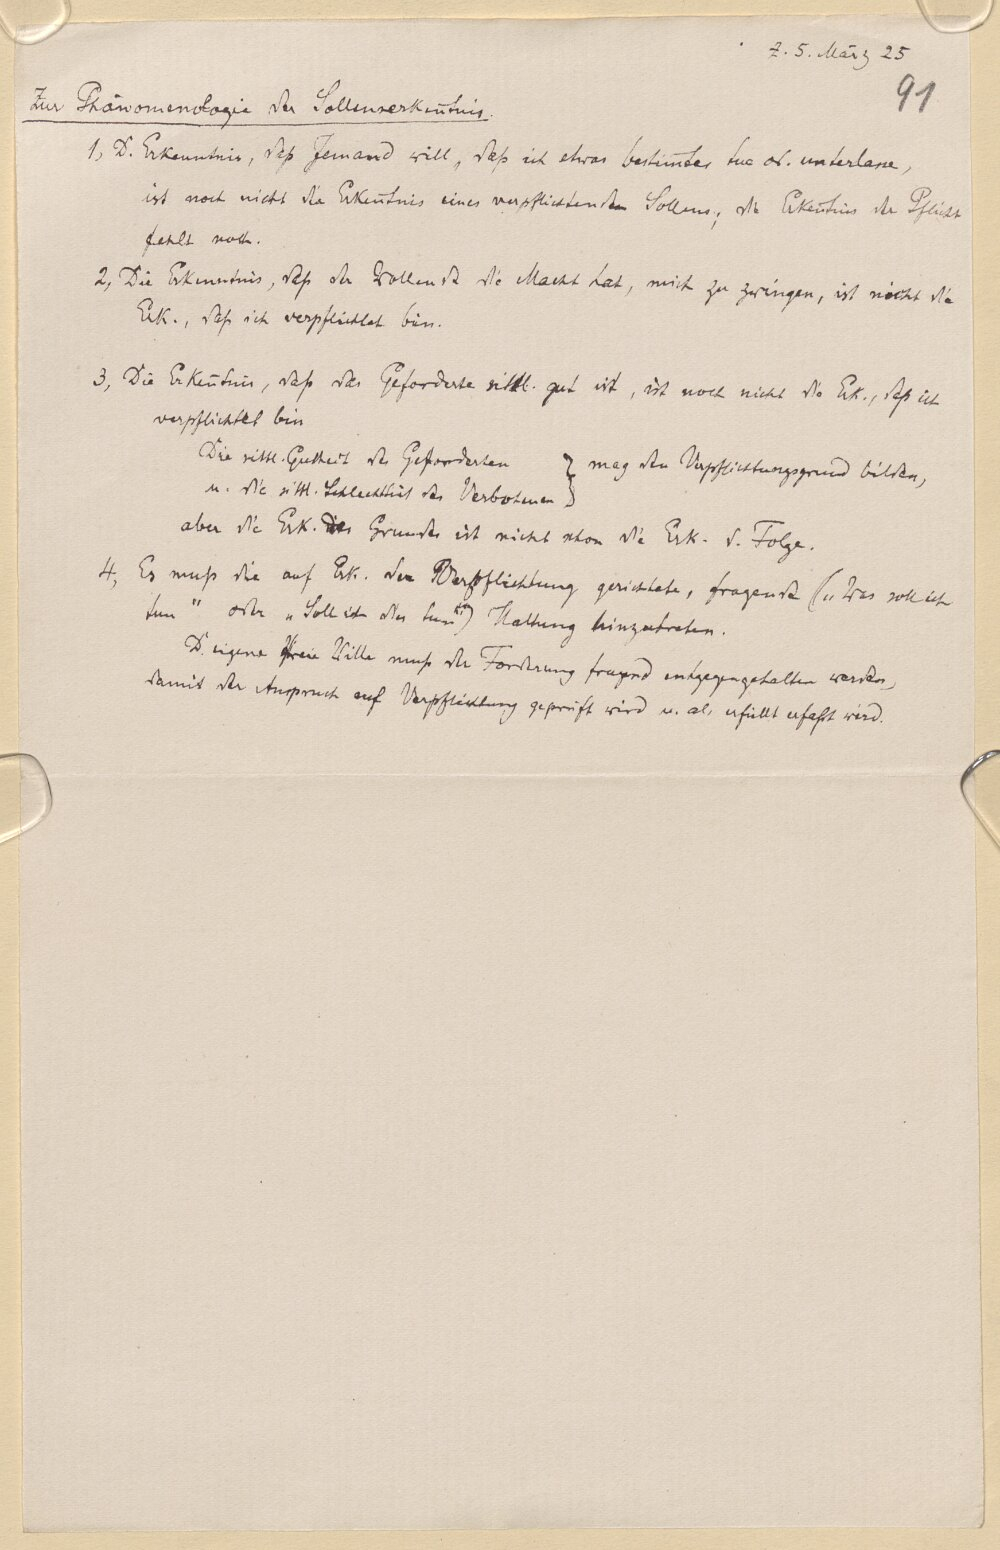 Z. 5. März 25
91
Zur Phänomenologie der Sollenserkeñtnis.
1, D. Erkenntnis, daß Jemand will, daß ich etwas bestim̃tes tue od. unterlasse,
ist noch nicht die Erkeñtnis eines verpflichtenden Sollens; die Erkeñtnis der Pflicht
fehlt noch.
2, Die Erkenntnis, daß der Wollende die Macht hat, mich zu zwingen, ist nicht die
Erk., daß ich verpflichtet bin.
3, Die Erkeñtnis, daß das Geforderte sittl. gut ist, ist noch nicht die Erk., daß ich
verpflichtet bin
Die sittl. Gutheit des Geforderten } mag den Verpflichtungsgrund bilden,
u. die sittl. Schlechtheit des Verbotenen
aber die Erk. des Grundes ist nicht schon die Erk. d. Folge.
4, Es muß die auf Erk. der Verpflichtung gerichtete, fragende („Was soll ich
tun" oder „Soll ich dies tun") Haltung hinzutreten.
D. eigene freie Wille muß der Forderung fragend entgegengehalten werden,
damit der Anspruch auf Verpflichtung geprüft wird u. als erfüllt erfaßt wird.